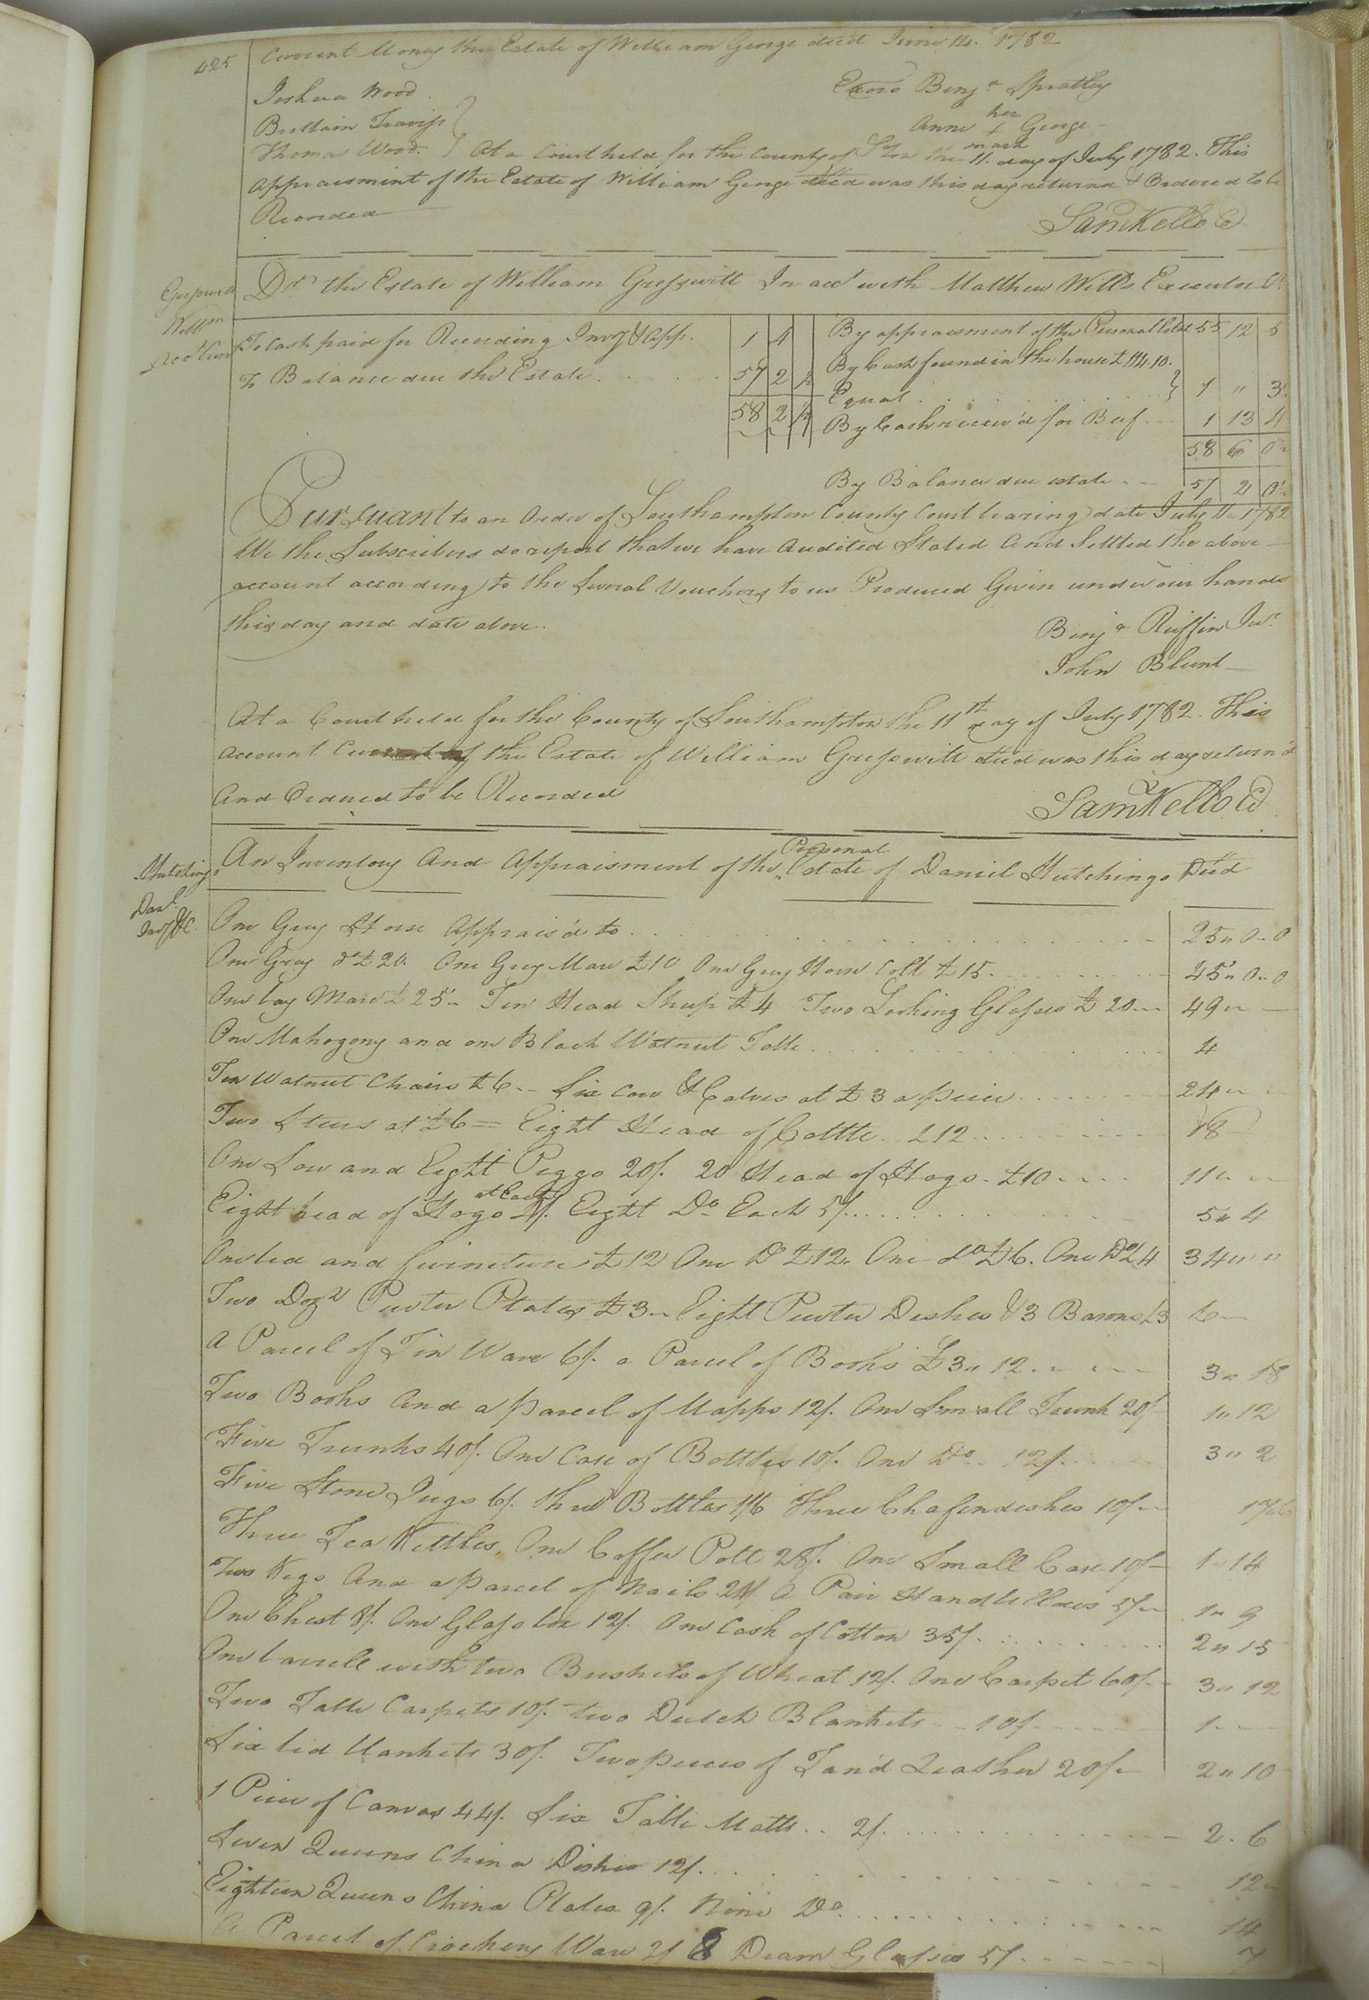 425
Current Money the Estate of William George decd June 14. 1782
Joshua Wood
Exors Benja Spratley
Brittain Traviss
her
Anne + George
mark
Thomas Wood. At a Court held for the County of Soton the 11 day of July 1782. This
Appraisment of the Estate of William George decd was this day returnd & Ordered to be
Recorded
Saml Kello C
Dr the Estate of William Gresswitt In acct with Matthew Wills Executor Cr
Gresswitt
Willm
Acct Curr
To Cash paid for Recording Invy & App. 1 4
By appraisment of the Personal Estate 55 12 5
By Cash found in the house £114.10.
To Balance due the Estate . . . 57 2 ½
Equal . . . 1 " 3
58 2 ½
By Cash receiv'd for Beef . . . 1 13 4
58 6 0½
By Balance due estate . . . 57 2 0½
Pursuant to an Order of Southampton County Court bearing date July 11 1782
We the Subscribers do report that we have Audited Stated And Settled the above
account according to the Several Vouchers to us Produced Given under our hands
this day and date above.
Benja Ruffin Junr
John Blunt
At a Court held for the County of Southampton the 11th day of July 1782. This
Account Current of the Estate of William Gresswitt decd was this day return'd
And Ordered to be Recorded
Saml Kello C
Hutchings
Danl
Invy &C.
An Inventory And Appraisment of the Personal Estate of Daniel Hutchings Decd
One Grey Horse Apprais'd to . . . 25 " 0 " 0
One Grey do £20. One Grey Mare £10 One Grey Horse Colt £15. . . . 45 " 0 " 0
One bay Mare £25 " Ten Head Sheep £4 Two Looking Glasses £20 . . . 49 " "
One Mahogony and one Black Walnut Table . . . 4
Ten Walnut Chairs £6 .. Six Cows & Calves at £3 a piece . . . 24 " "
Two Steers at £6 = Eight Head of Cattle . £12 . . . 18
One Sow and Eight Piggs 20/. 20 Head of Hogs . £10 . . . 11 " "
Eight head of Hogs at Each 8/. Eight Do Each 5/ . . . 5 " 4
One bed and furineture £12 One Do £12. One do £6. One Do £4 34 " " "
Two Dozn Pewter Plates £3 " Eight Pewter Dishes & 3 Basons £3 6 "
A Parcel of Tin Ware 6/. a Parcel of Books £3 " 12 . . . 3 " 18
Two Books And a parcel of Mapps 12/. One Small Trunk 20/ 1 " 12
Five Trunks 40/. One Case of Bottles 10/. One Do .. 12/. 3 " 2
Five Stone Jugs 6/. three Bottles 1/6 Three Chafendishes 10/ " 17 " 6
Three Tea Kettles, One Coffee Pott 28/. One Small Case 10/ 1 " 14
Two Kegs And a parcel of Nails 24/ A Pair Handbellows 5/ 1 " 9
One Chest 8/. One Glass box 12/. One Cask of Cotton 35/. . . . 2 " 15
One barrell with two Bushels of Wheat 12/. One Carpet 60/ 3 " 12
Two Table Carpets 10/. two Dutch Blankets 10/ 1 " "
Six bed blankets 30/. Two pieces of Tan'd Leather 20/ 2 " 10
1 Piece of Canvas 44/. Six Table Matts .. 2/. . . . 2 . 6
Seven Queens China Dishes 12/. . . . 12 "
Eighteen Queens China Plates 9/. Nine Do. . . . 14
A Parcel of Crockery Ware 2/ 8 Dram Glasses 5/ . . . 7